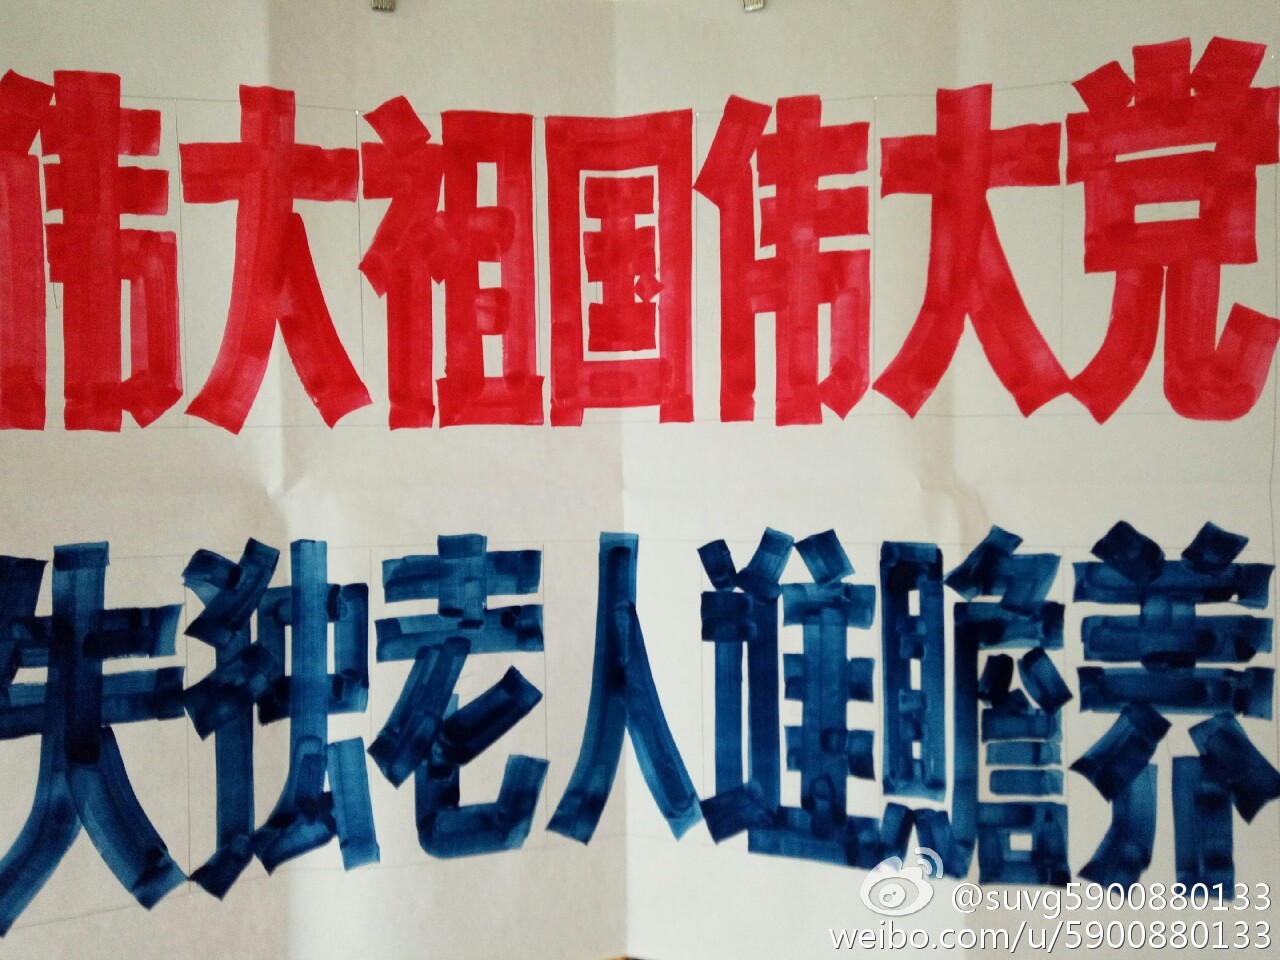 伟大祖国伟大党
失独老人谁赡养
@suvg5900880133
weibo.com/u/5900880133